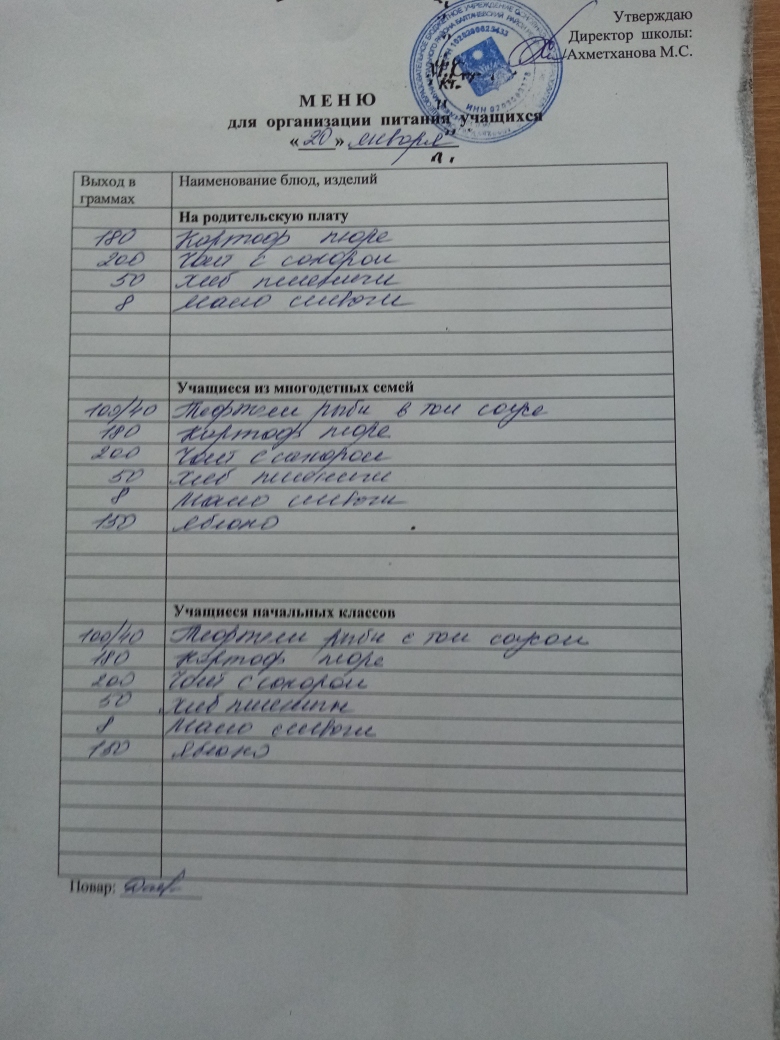 Утверждаю
Директор школы:
Ахметханова М.С.
МЕНЮ
для организации питания учащихся
«20» января
Выход в граммах Наименование блюд, изделий
На родительскую плату
180 Картоф пюре
200 Чай с сахаром
50 Хлеб пшенични
8 масло сливочн
Учащиеся из многодетных семей
100/40 Тефтели рыбн в том соусе
180 Картоф пюре
200 Чай с сахаром
50 Хлеб пшеничн
8 Масло сливочн
150 яблоко
Учащиеся начальных классов
100/40 Тефтели рыбн с том соусом
180 Картоф пюре
200 Чай с сахаром
50 Хлеб пшеничн
8 Масло сливочн
150 яблоко
Повар: